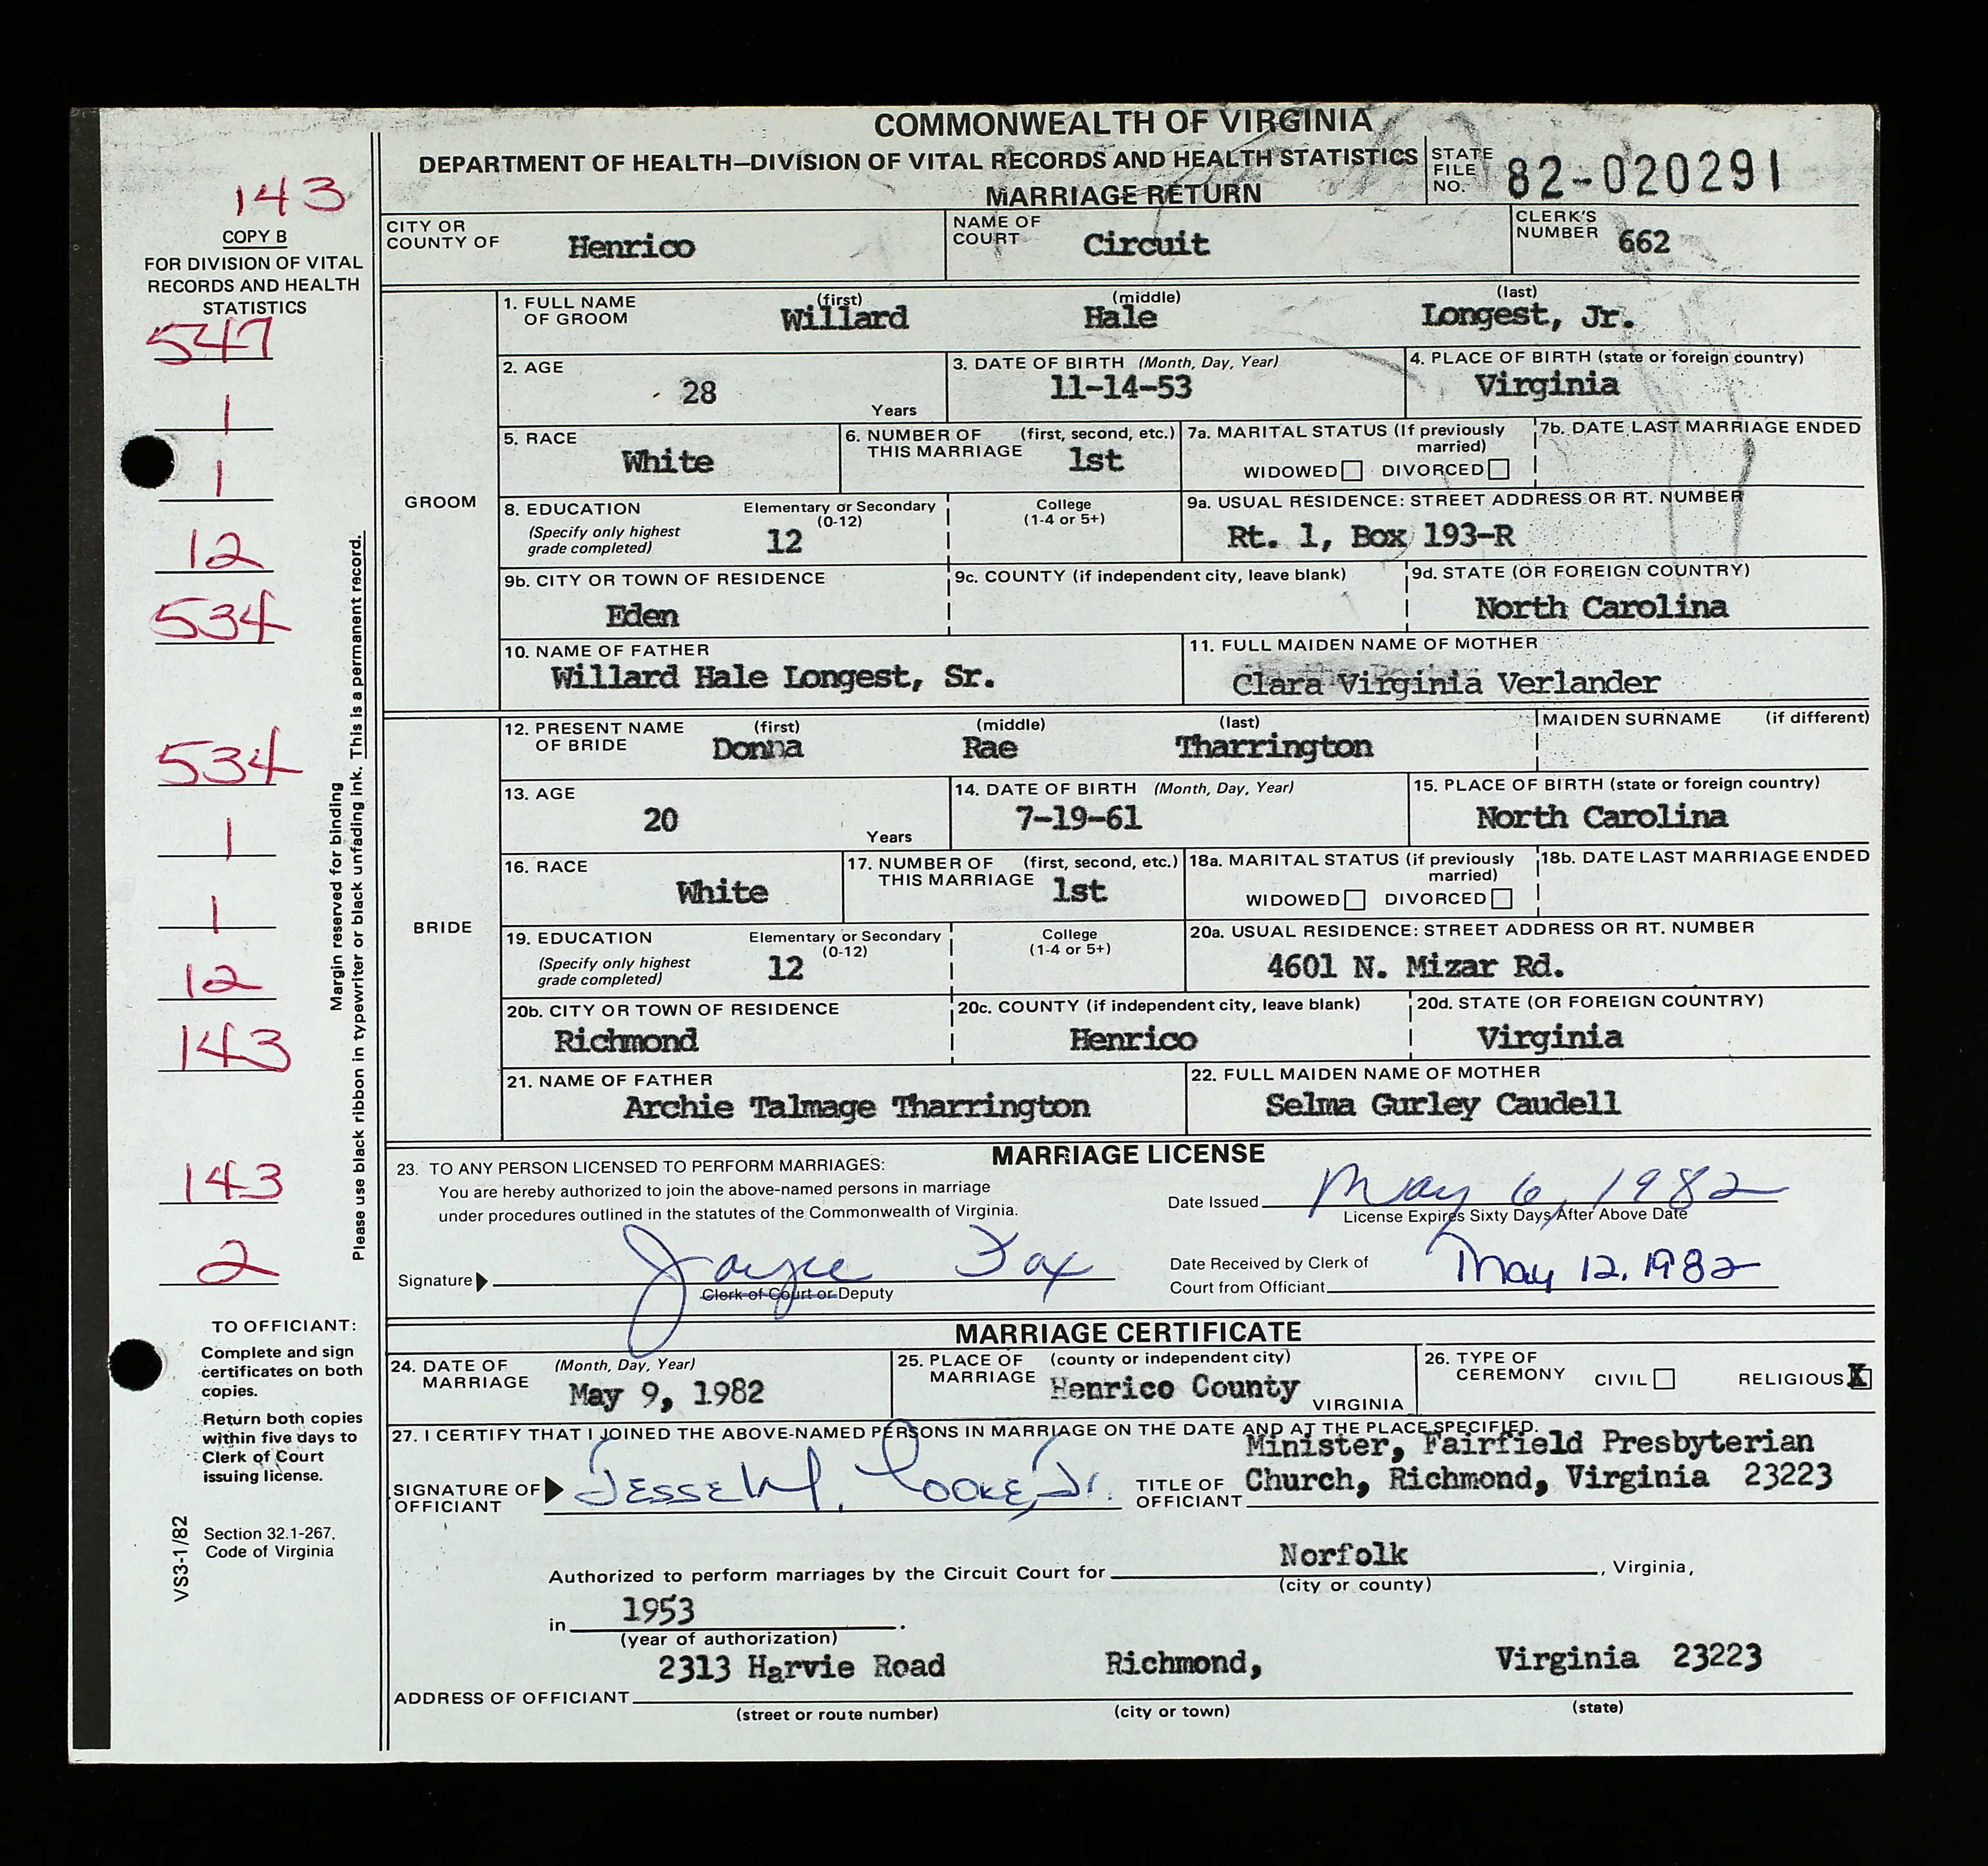 COMMONWEALTH OF VIRGINIA
DEPARTMENT OF HEALTH—DIVISION OF VITAL RECORDS AND HEALTH STATISTICS
MARRIAGE RETURN
STATE FILE NO. 82-020291
143
COPY B
FOR DIVISION OF VITAL
RECORDS AND HEALTH
STATISTICS
547
1
1
12
534
534
1
1
12
143
143
2
Margin reserved for binding
Please use black ribbon in typewriter or black unfading ink. This is a permanent record.
TO OFFICIANT:
Complete and sign
certificates on both
copies.
Return both copies
within five days to
Clerk of Court
issuing license.
Section 32.1-267,
Code of Virginia
VS3-1/82
CITY OR COUNTY OF Henrico
NAME OF COURT Circuit
CLERK'S NUMBER 662
GROOM
1. FULL NAME OF GROOM (first) Willard (middle) Hale (last) Longest, Jr.
2. AGE 28 Years
3. DATE OF BIRTH (Month, Day, Year) 11-14-53
4. PLACE OF BIRTH (state or foreign country) Virginia
5. RACE White
6. NUMBER OF THIS MARRIAGE (first, second, etc.) 1st
7a. MARITAL STATUS (If previously married) WIDOWED DIVORCED
7b. DATE LAST MARRIAGE ENDED
8. EDUCATION (Specify only highest grade completed) Elementary or Secondary (0-12) 12 College (1-4 or 5+)
9a. USUAL RESIDENCE: STREET ADDRESS OR RT. NUMBER Rt. 1, Box 193-R
9b. CITY OR TOWN OF RESIDENCE Eden
9c. COUNTY (if independent city, leave blank)
9d. STATE (OR FOREIGN COUNTRY) North Carolina
10. NAME OF FATHER Willard Hale Longest, Sr.
11. FULL MAIDEN NAME OF MOTHER Clara Virginia Verlander
BRIDE
12. PRESENT NAME OF BRIDE (first) Donna (middle) Rae (last) Tharrington
MAIDEN SURNAME (if different)
13. AGE 20 Years
14. DATE OF BIRTH (Month, Day, Year) 7-19-61
15. PLACE OF BIRTH (state or foreign country) North Carolina
16. RACE White
17. NUMBER OF THIS MARRIAGE (first, second, etc.) 1st
18a. MARITAL STATUS (if previously married) WIDOWED DIVORCED
18b. DATE LAST MARRIAGE ENDED
19. EDUCATION (Specify only highest grade completed) Elementary or Secondary (0-12) 12 College (1-4 or 5+)
20a. USUAL RESIDENCE: STREET ADDRESS OR RT. NUMBER 4601 N. Mizar Rd.
20b. CITY OR TOWN OF RESIDENCE Richmond
20c. COUNTY (if independent city, leave blank) Henrico
20d. STATE (OR FOREIGN COUNTRY) Virginia
21. NAME OF FATHER Archie Talmage Tharrington
22. FULL MAIDEN NAME OF MOTHER Selma Gurley Caudell
MARRIAGE LICENSE
23. TO ANY PERSON LICENSED TO PERFORM MARRIAGES:
You are hereby authorized to join the above-named persons in marriage
under procedures outlined in the statutes of the Commonwealth of Virginia.
Date Issued May 6, 1982
License Expires Sixty Days After Above Date
Signature Joyce Fox
Clerk of Court or Deputy
Date Received by Clerk of
Court from Officiant May 12, 1982
MARRIAGE CERTIFICATE
24. DATE OF MARRIAGE (Month, Day, Year) May 9, 1982
25. PLACE OF MARRIAGE (county or independent city) Henrico County VIRGINIA
26. TYPE OF CEREMONY CIVIL RELIGIOUS X
27. I CERTIFY THAT I JOINED THE ABOVE-NAMED PERSONS IN MARRIAGE ON THE DATE AND AT THE PLACE SPECIFIED.
SIGNATURE OF OFFICIANT Jesse M. Cooke, Jr.
TITLE OF OFFICIANT Minister, Fairfield Presbyterian
Church, Richmond, Virginia 23223
Authorized to perform marriages by the Circuit Court for Norfolk, Virginia,
(city or county)
in 1953.
(year of authorization)
ADDRESS OF OFFICIANT 2313 Harvie Road Richmond, Virginia 23223
(street or route number) (city or town) (state)